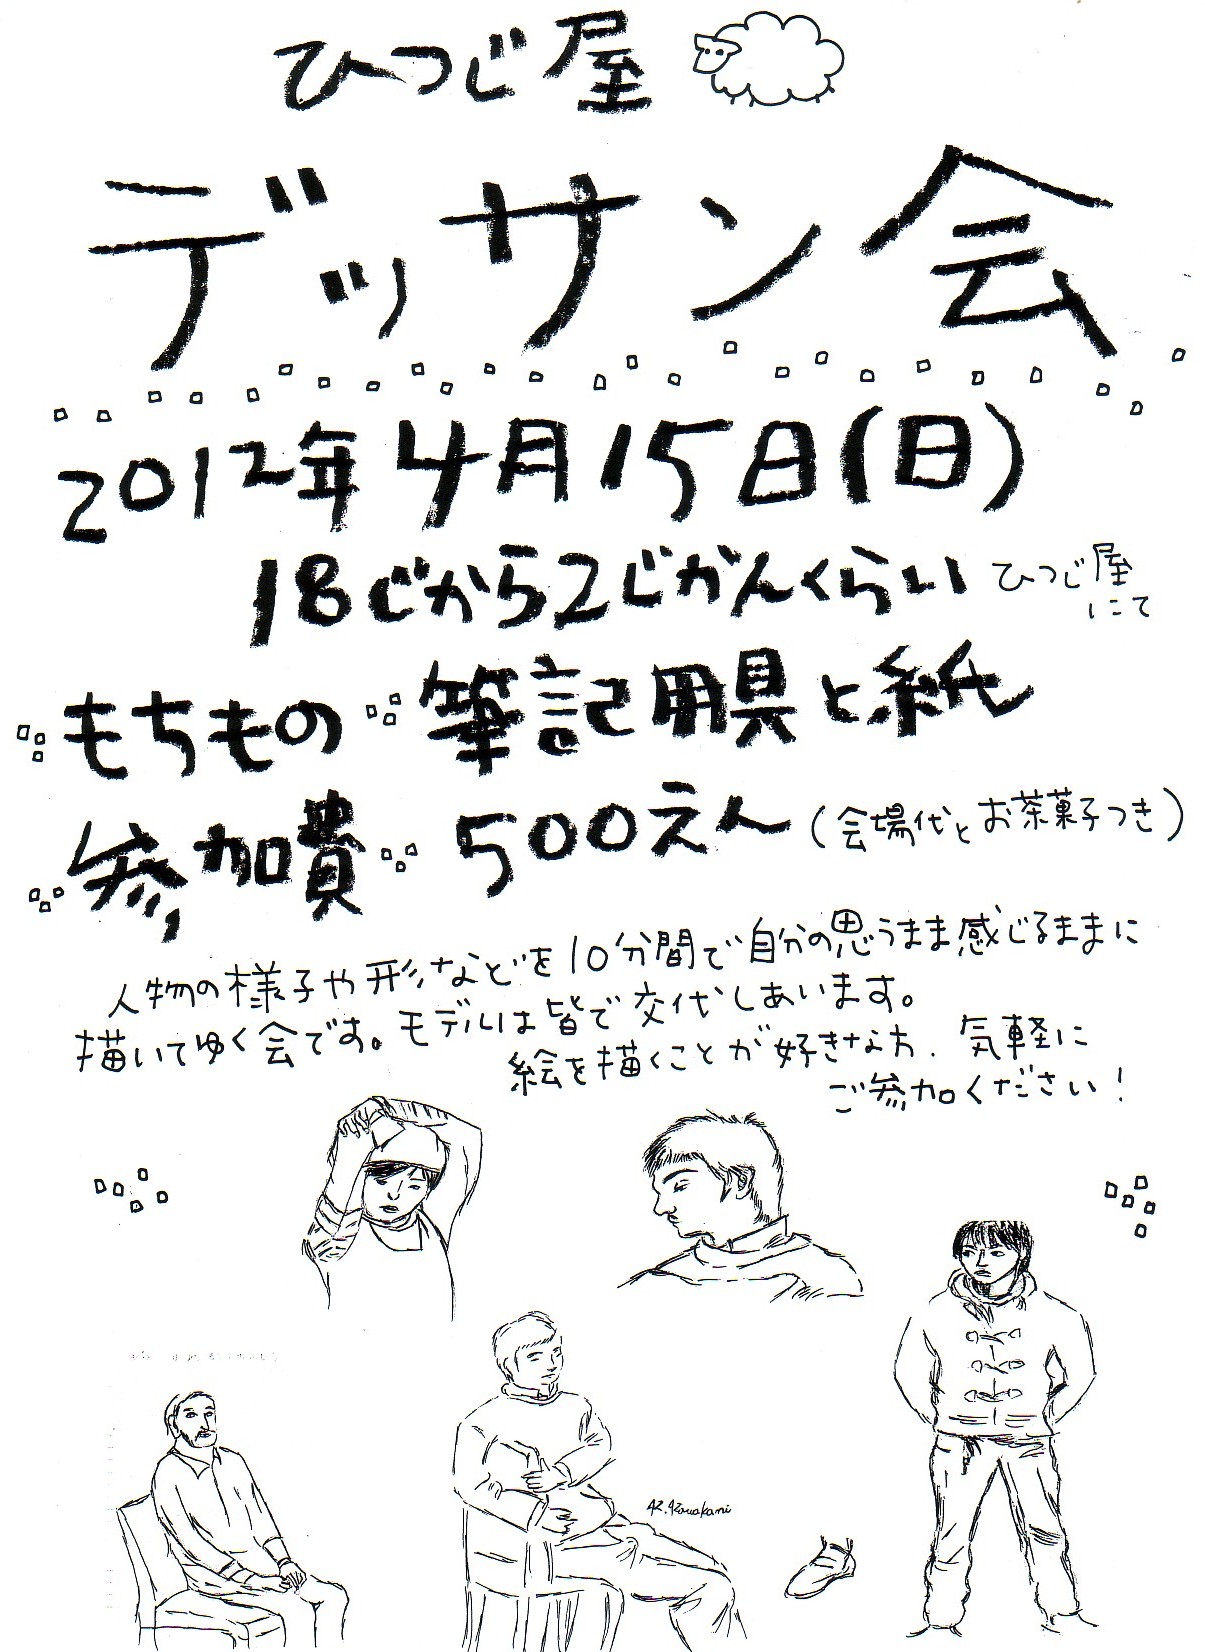 ひつじ屋
デッサン会
2012年4月15日(日)
18じから2じかんくらい ひつじ屋にて
もちもの 筆記用具と紙
参加費 500えん (会場代とお茶菓子つき)
人物の様子や形などを10分間で自分の思うまま感じるままに
描いてゆく会です。モデルは皆で交代しあいます。
絵を描くことが好きな方、気軽に
ご参加ください!
K.Kawakami